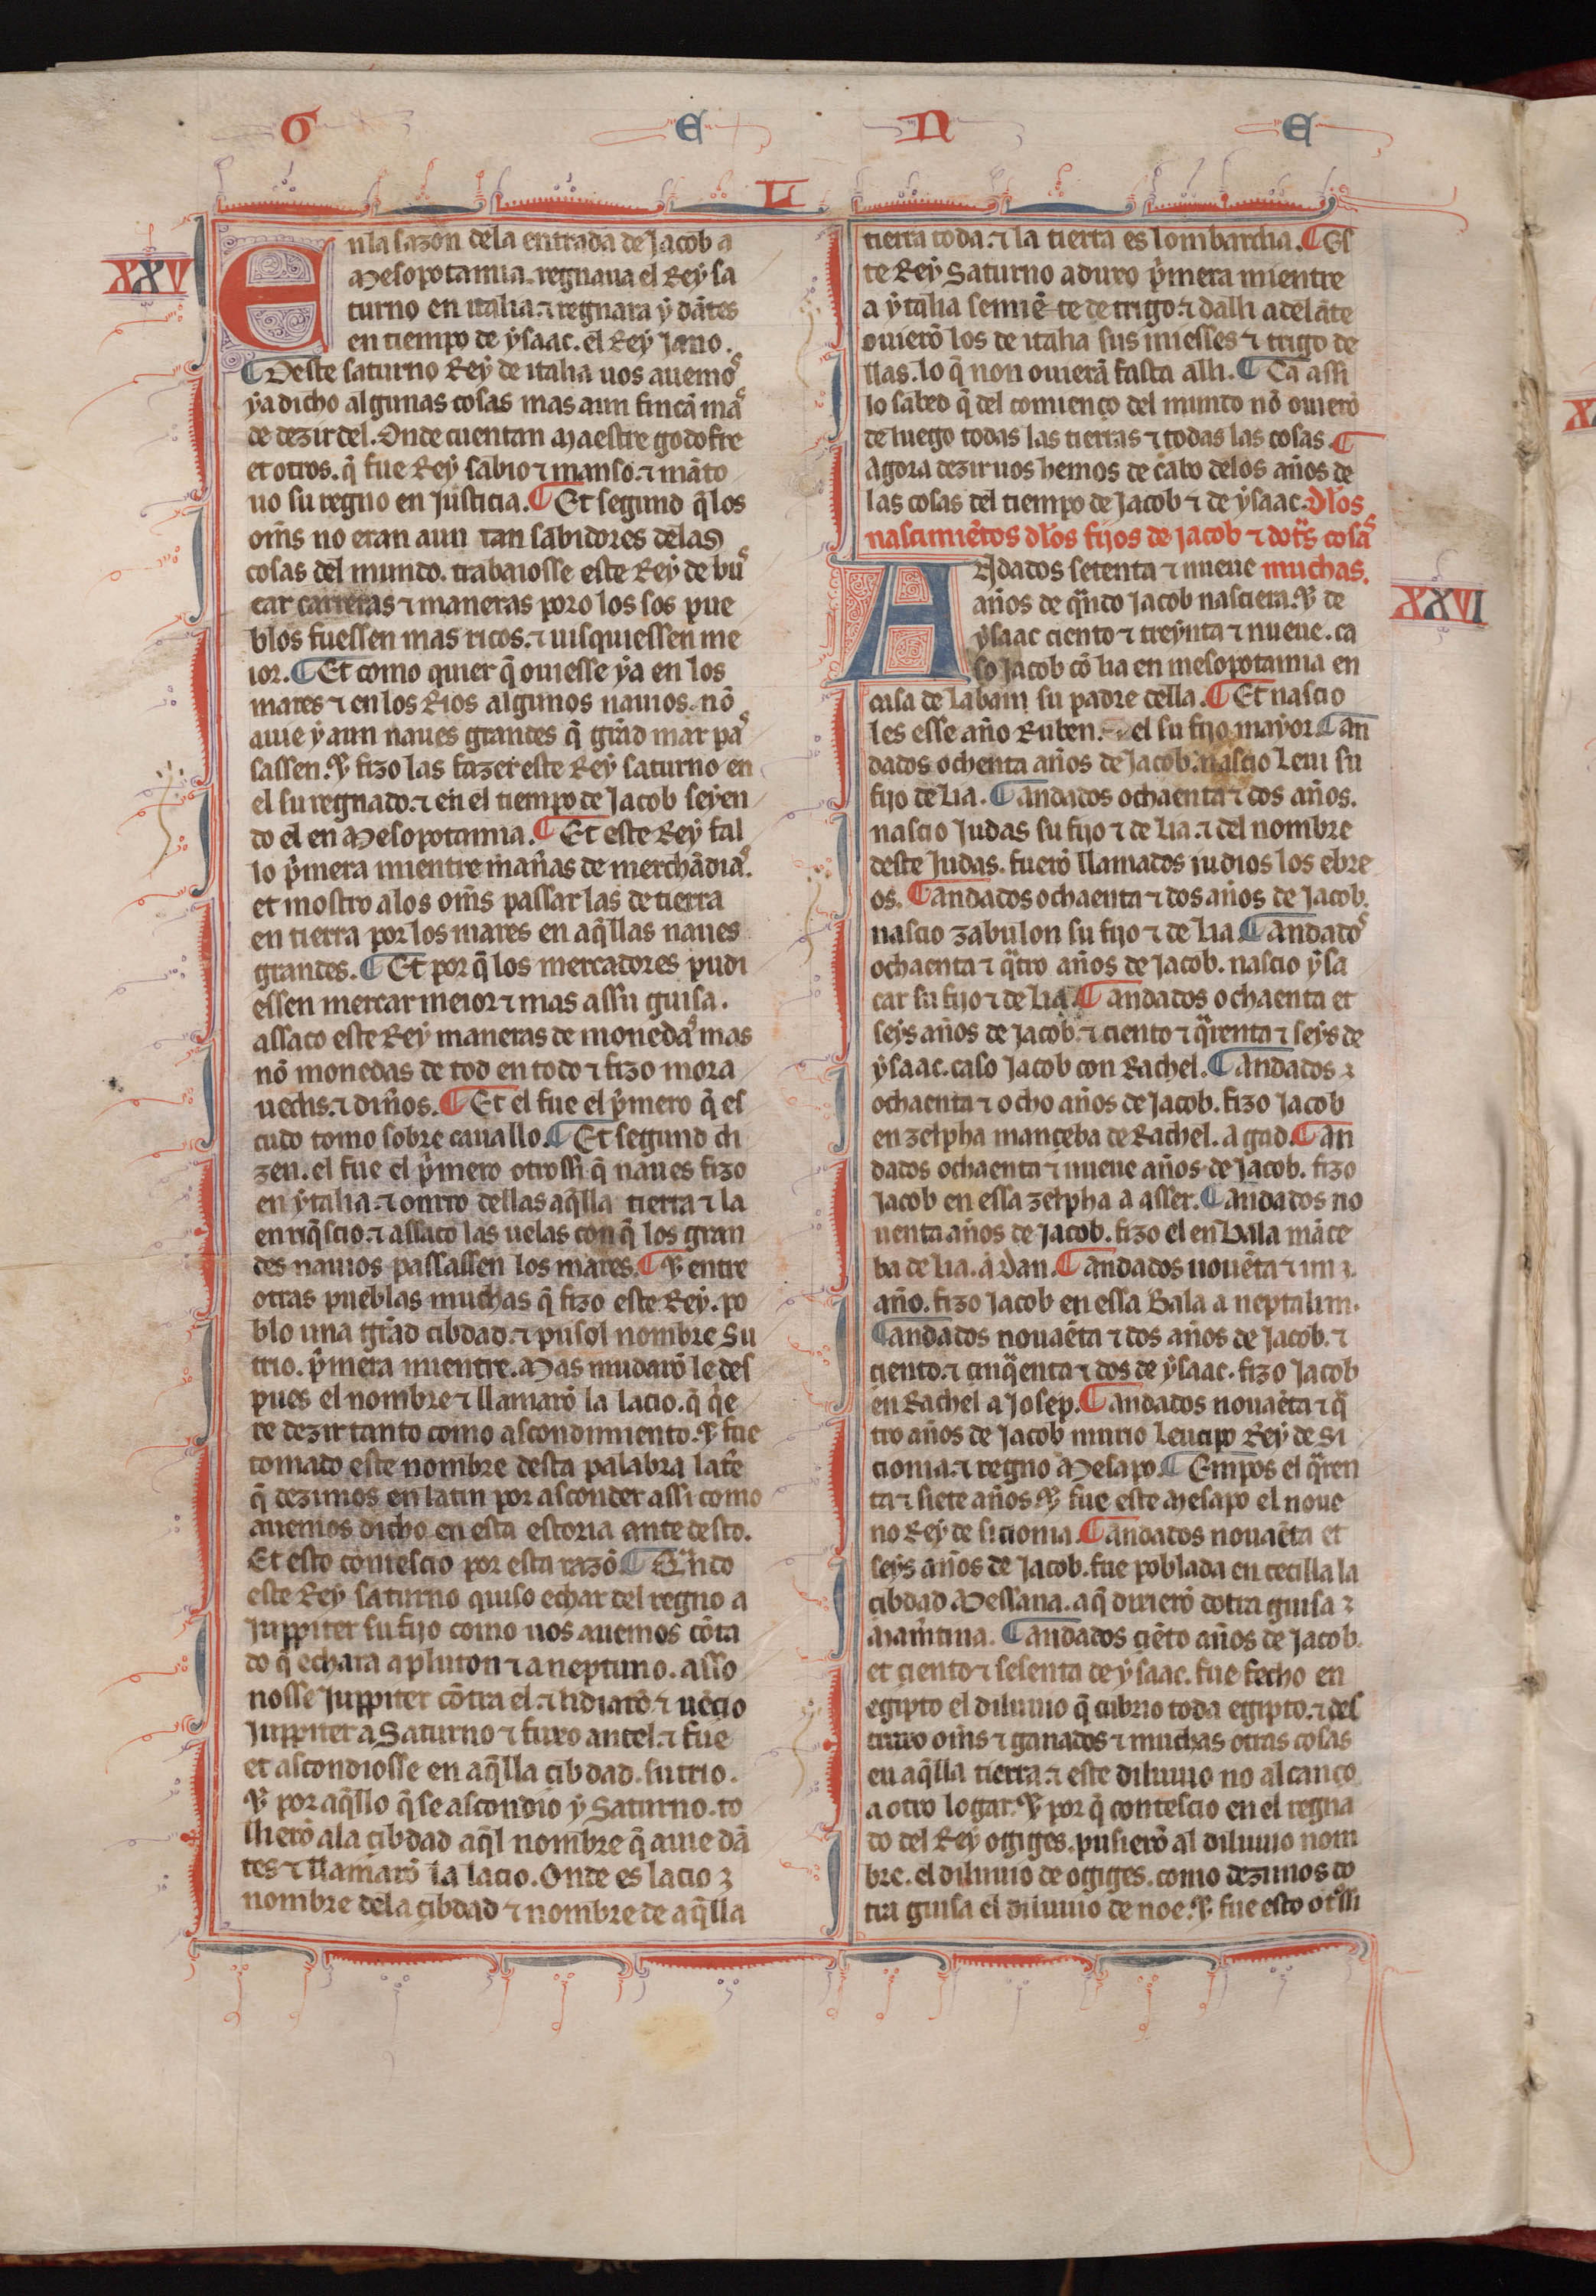 G E N E
L
XXV
En la sazon dela entrada de Jacob a
Mesopotamia. regnaua el Rey sa
turno en italia. ⁊ regnara ẏ dãtes
en tiempo de ẏsaac. el Rey Jano.
¶ Deste saturno Rey de italia uos auemoˢ
ẏa dicho algunas cosas mas aun fincã maˢ
de dezir del. Onde cuentan Maestre godofre
et otros. q̃ fue Rey sabio ⁊ manso. ⁊ mãto
uo su regno en Justicia. ¶ Et segund q̃ los
om̃s no eran aun tan sabidores delas
cosas del mundo. trabaiosse este Rey de buˢ
car carreras ⁊ maneras poro los sos pue
blos fuessen mas ricos. ⁊ uisquiessen me
ior. ¶ Et como quier q̃ ouiesse ẏa en los
mares ⁊ en los Rios algunos nauios. nõ
auie ẏ aun naues grandes q̃ grãd mar paˢ
sassen. ⁊ fizo las fazer este Rey saturno en
el su regnado. ⁊ en el tiempo de Jacob seyen
do el en Mesopotamia. ¶ Et este Rey fal
lo p̃mera mientre mañas de merchãdiaˢ.
et mostro alos om̃s passar las de tierra
en tierra por los mares en aq̃llas naues
grandes. ¶ Et por q̃ los mercadores pudi
essen mercar meior ⁊ mas assu guisa.
assaco este Rey maneras de monedaˢ mas
nõ monedas de tod en todo ⁊ fizo mora
uedis. ⁊ diños. ¶ Et el fue el p̃mero q̃ es
cudo tomo sobre cauallo. ¶ Et segund di
zen. el fue el p̃mero otrossi q̃ naues fizo
en ẏtalia. ⁊ ontro dellas aq̃lla tierra ⁊ la
enriq̃scio. ⁊ assaco las uelas con q̃ los gran
des nauios passassen los mares. ¶ ⁊ entre
otras pueblas muchas q̃ fizo este Rey. po
blo una grãd cibdad. ⁊ pusol nombre Su
trio. p̃mera mientre. Mas mudarõ le des
pues el nombre ⁊ llamarõ la lacio. q̃ q̃e
re dezir tanto como ascondimiento. ⁊ fue
tomado este nombre desta palabra lat̃e
q̃ dezimos en latin por asconder assi como
auemos dicho en esta estoria ante desto.
Et esto contescio por esta razõ ¶ Qñdo
este Rey saturno quiso echar del regno a
Juppiter su fijo como uos auemos cõta
do q̃ echara a pluton ⁊ a neptuno. asso
nosse Juppiter cõtra el. ⁊ lidiarõ ⁊ uẽcio
Juppiter a Saturno ⁊ fuxo antel. ⁊ fue
et ascondiosse en aq̃lla cibdad. sutrio.
⁊ por aq̃llo q̃ se ascondio ẏ Saturno. to
llierõ ala cibdad aq̃l nombre q̃ auie dã
tes ⁊ llamarõ la lacio. Onde es lacio
nombre dela cibdad ⁊ nombre de aq̃lla
tierra toda. ⁊ la tierra es lombardia. ¶ Es
te Rey Saturno aduxo p̃mera mientre
a ẏtalia semiẽte de trigo. ⁊ dalli adelãte
ouierõ los de italia sus miesses ⁊ trigo de
llas. lo q̃ non ouierã fasta alli. ¶ Ca assi
lo sabed q̃ del comienço del mundo nõ ouierõ
de luego todas las tierras ⁊ todas las cosas. ¶
Agora dezir uos hemos de cabo delos años de
las cosas del tiempo de Jacob ⁊ de ẏsaac. Dlos
nascimiẽtos dlos fijos de jacob ⁊ dotᵃs cosaˢ
Andados setenta ⁊ nueue muchas.
XXVI
años de qñdo Jacob nasciera. ⁊ de
ẏsaac ciento ⁊ treẏnta ⁊ nueue. ca
so Jacob cõ lia en mesopotamia en
casa de labam su padre della. ¶ Et nascio
les esse año Ruben. el su fijo mayor ¶ An
dados ochenta años de Jacob. nascio Leui su
fijo de Lia. ¶ Andados ochaenta ⁊ dos años.
nascio Judas su fijo ⁊ de Lia. ⁊ del nombre
deste Judas. fuerõ llamados iudios los ebre
os. ¶ Andados ochaenta ⁊ dos años de Jacob.
nascio zabulon su fijo ⁊ de Lia ¶ Andadoˢ
ochaenta ⁊ qᵃtro años de Jacob. nascio ẏsa
car su fijo ⁊ de Lia. ¶ Andados ochaenta et
seẏs años de Jacob. ⁊ ciento ⁊ qᵃrenta ⁊ seẏs de
ẏsaac. caso Jacob con Rachel. ¶ Andados
ochaenta ⁊ ocho años de Jacob. fizo Jacob
en zelpha manceba de Rachel. a gad. ¶ An
dados ochaenta ⁊ nueue años de Jacob. fizo
Jacob en essa zelpha a asser. ¶ Andados no
uenta años de Jacob. fizo el en Bala mãce
ba de Lia. a Dan. ¶ Andados nouẽta ⁊ un
año. fizo Jacob en essa Bala a neptalim.
¶ Andados nouaẽta ⁊ dos años de Jacob. ⁊
ciento. ⁊ cinqᵃenta ⁊ dos de ẏsaac. fizo Jacob
en Rachel a Josep. ¶ Andados nouaẽta ⁊ qᵃ
tro años de Jacob murio Leucipo Rey de Si
cionia. ⁊ regno Mesapo. ¶ Empos el qᵃren
ta ⁊ siete años. ⁊ fue este Mesapo el noue
no Rey de sicionia. ¶ Andados nouaẽta et
seẏs años de Jacob. fue poblada en cecilla la
cibdad Messana. a q̃ dixierõ dotra guisa
Mam̃tina. ¶ Andados ciẽto años de Jacob.
et ciento ⁊ sesenta de ẏsaac. fue fecho en
egipto el diluuio q̃ cubrio toda egipto. ⁊ des
truxo om̃s ⁊ ganados ⁊ muchas otras cosas
en aq̃lla tierra. ⁊ este diluuio no alcanço
a otro logar. ⁊ por q̃ contescio en el regna
do del Rey ogiges. pusierõ al diluuio nom
bre. el diluuio de ogiges. como dezimos do
tra guisa el diluuio de noe. ⁊ fue esto otᵃssi